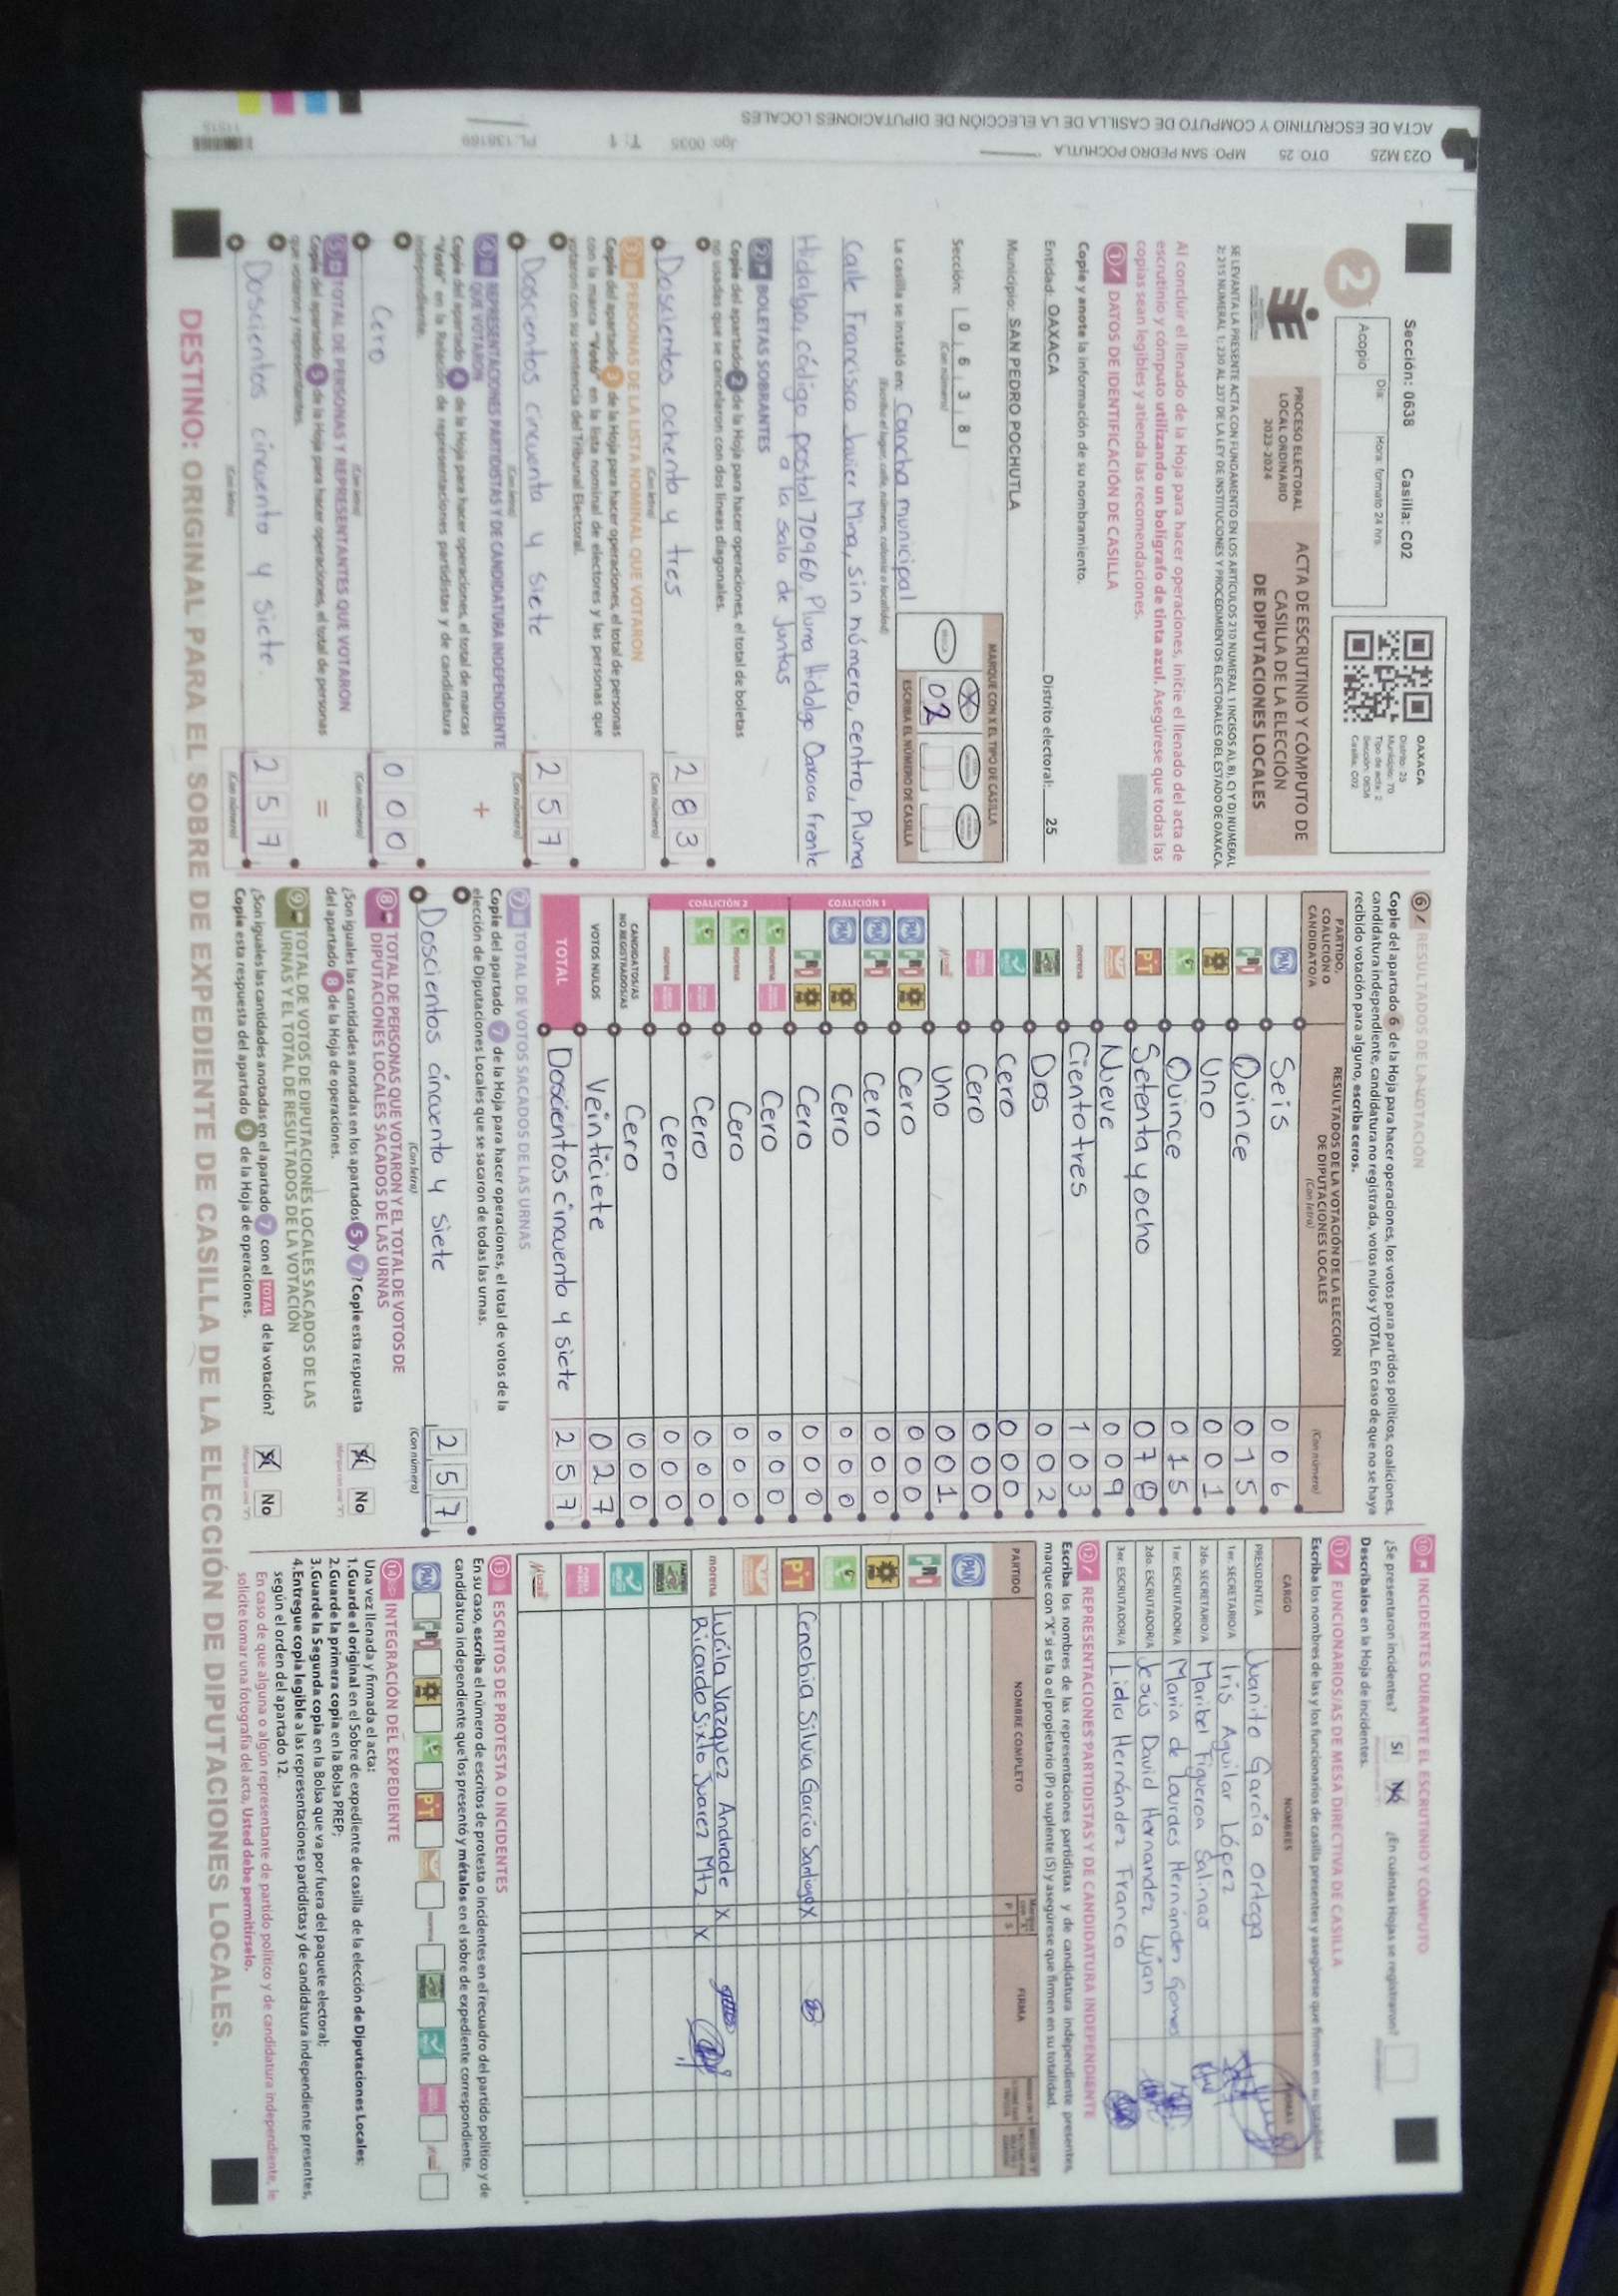 ACTA DE ESCRUTINIO Y CÓMPUTO DE CASILLA DE LA ELECCIÓN DE DIPUTACIONES LOCALES
O23 M25 DTO: 25 MPO: SAN PEDRO POCHUTLA Jgo: 0035 T: 1 PL:138169
11515
Sección: 0638 Casilla: C02
2
Acopio
Día:
Hora: formato 24 hrs.
OAXACA
Distrito: 25
Municipio: 70
Tipo de acta: 2
Sección: 0638
Casilla: C02
PROCESO ELECTORAL
LOCAL ORDINARIO
2023-2024
ACTA DE ESCRUTINIO Y CÓMPUTO DE
CASILLA DE LA ELECCIÓN
DE DIPUTACIONES LOCALES
SE LEVANTA LA PRESENTE ACTA CON FUNDAMENTO EN LOS ARTÍCULOS 210 NUMERAL 1 INCISOS A), B), C) Y D) NUMERAL
2; 215 NUMERAL 1; 230 AL 237 DE LA LEY DE INSTITUCIONES Y PROCEDIMIENTOS ELECTORALES DEL ESTADO DE OAXACA.
Al concluir el llenado de la Hoja para hacer operaciones, inicie el llenado del acta de
escrutinio y cómputo utilizando un bolígrafo de tinta azul. Asegúrese que todas las
copias sean legibles y atienda las recomendaciones.
1 DATOS DE IDENTIFICACIÓN DE CASILLA
Copie y anote la información de su nombramiento.
Entidad: OAXACA Distrito electoral: 25
Municipio: SAN PEDRO POCHUTLA
Sección: 0 6 3 8
(Con número)
MARQUE CON X EL TIPO DE CASILLA
ESCRIBA EL NÚMERO DE CASILLA
X
02
La casilla se instaló en: Cancha municipal
(Escriba el lugar, calle, número, colonia o localidad)
Calle Francisco Javier Mina, sin número, centro, Pluma
Hidalgo, código postal 70960, Pluma Hidalgo Oaxaca frente
a la sala de juntas
2 BOLETAS SOBRANTES
Copie del apartado 2 de la Hoja para hacer operaciones, el total de boletas
no usadas que se cancelaron con dos líneas diagonales.
Doscientos ochenta y tres 2 8 3
(Con letra) (Con número)
3 PERSONAS DE LA LISTA NOMINAL QUE VOTARON
Copie del apartado 3 de la Hoja para hacer operaciones, el total de personas
con la marca "Votó" en la lista nominal de electores y las personas que
votaron con su sentencia del Tribunal Electoral.
Doscientos cincuenta y siete 2 5 7
(Con letra) (Con número)
4 REPRESENTACIONES PARTIDISTAS Y DE CANDIDATURA INDEPENDIENTE
QUE VOTARON +
Copie del apartado 4 de la Hoja para hacer operaciones, el total de marcas
"Votó" en la Relación de representaciones partidistas y de candidatura
independiente.
Cero 0 0 0
(Con letra) (Con número)
5 TOTAL DE PERSONAS Y REPRESENTANTES QUE VOTARON =
Copie del apartado 5 de la Hoja para hacer operaciones, el total de personas
que votaron y representantes.
Doscientos cincuenta y siete. 2 5 7
(Con letra) (Con número)
6 RESULTADOS DE LA VOTACIÓN
Copie del apartado 6 de la Hoja para hacer operaciones, los votos para partidos políticos, coaliciones,
candidatura independiente, candidatura no registrada, votos nulos y TOTAL. En caso de que no se haya
recibido votación para alguno, escriba ceros.
PARTIDO,
COALICIÓN O
CANDIDATO/A
RESULTADOS DE LA VOTACIÓN DE LA ELECCIÓN
DE DIPUTACIONES LOCALES
(Con letra) (Con número)
PAN Seis 0 0 6
PRI Quince 0 1 5
Uno 0 0 1
Quince 0 1 5
PT Setenta y ocho 0 7 8
Nueve 0 0 9
morena Ciento tres 1 0 3
Dos 0 0 2
Cero 0 0 0
Cero 0 0 0
Uno 0 0 1
COALICIÓN 1
PAN PRI Cero 0 0 0
PAN PRI Cero 0 0 0
PAN Cero 0 0 0
PRI Cero 0 0 0
COALICIÓN 2
morena Cero 0 0 0
morena Cero 0 0 0
Cero 0 0 0
morena Cero 0 0 0
CANDIDATOS/AS
NO REGISTRADOS/AS Cero 0 0 0
VOTOS NULOS Veinticiete 0 2 7
TOTAL Doscientos cincuenta y siete 2 5 7
7 TOTAL DE VOTOS SACADOS DE LAS URNAS
Copie del apartado 7 de la Hoja para hacer operaciones, el total de votos de la
elección de Diputaciones Locales que se sacaron de todas las urnas.
Doscientos cincuenta y siete 2 5 7
(Con letra) (Con número)
8 TOTAL DE PERSONAS QUE VOTARON Y EL TOTAL DE VOTOS DE
DIPUTACIONES LOCALES SACADOS DE LAS URNAS
¿Son iguales las cantidades anotadas en los apartados 5 y 7? Copie esta respuesta
del apartado 8 de la Hoja de operaciones.
Sí No
9 TOTAL DE VOTOS DE DIPUTACIONES LOCALES SACADOS DE LAS
URNAS Y EL TOTAL DE RESULTADOS DE LA VOTACIÓN
¿Son iguales las cantidades anotadas en el apartado 7 con el TOTAL de la votación?
Copie esta respuesta del apartado 9 de la Hoja de operaciones.
Sí No
10 INCIDENTES DURANTE EL ESCRUTINIO Y CÓMPUTO
¿Se presentaron incidentes? Sí No ¿En cuántas Hojas se registraron?
Descríbalos en la Hoja de incidentes.
11 FUNCIONARIOS/AS DE MESA DIRECTIVA DE CASILLA
Escriba los nombres de las y los funcionarios de casilla presentes y asegúrese que firmen en su totalidad.
CARGO NOMBRES FIRMAS
PRESIDENTE/A Juanito García Ortega
1er. SECRETARIO/A Iris Aguilar López
2do. SECRETARIO/A Maribel Figueroa Salinas
1er. ESCRUTADOR/A Maria de Lourdes Hernández Gomes
2do. ESCRUTADOR/A Jesús David Hernandez Lujan
3er. ESCRUTADOR/A Lidia Hernández Franco
12 REPRESENTACIONES PARTIDISTAS Y DE CANDIDATURA INDEPENDIENTE
Escriba los nombres de las representaciones partidistas y de candidatura independiente presentes,
marque con "X" si es la o el propietario (P) o suplente (S) y asegúrese que firmen en su totalidad.
PARTIDO NOMBRE COMPLETO P S FIRMA
PAN
PRI
PT Cenobia Silvia García Santiago X
morena Lucila Vazquez Andrade X
Ricardo Sixto Juarez Mtz X
13 ESCRITOS DE PROTESTA O INCIDENTES
En su caso, escriba el número de escritos de protesta o incidentes en el recuadro del partido político y de
candidatura independiente que los presentó y métalos en el sobre de expediente correspondiente.
PAN PRI PT morena
14 INTEGRACIÓN DEL EXPEDIENTE
Una vez llenada y firmada el acta:
1.Guarde el original en el Sobre de expediente de casilla de la elección de Diputaciones Locales;
2.Guarde la primera copia en la Bolsa PREP;
3.Guarde la Segunda copia en la Bolsa que va por fuera del paquete electoral;
4.Entregue copia legible a las representaciones partidistas y de candidatura independiente presentes,
según el orden del apartado 12.
En caso de que alguna o algún representante de partido político y de candidatura independiente, le
solicite tomar una fotografía del acta, Usted debe permitírselo.
DESTINO: ORIGINAL PARA EL SOBRE DE EXPEDIENTE DE CASILLA DE LA ELECCIÓN DE DIPUTACIONES LOCALES.